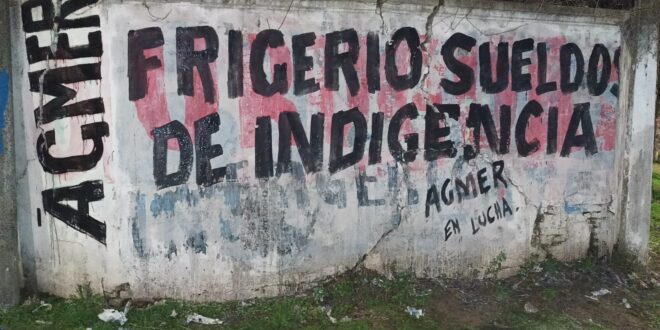 AGMER
FRIGERIO SUELDOS
DE INDIGENCIA
AGMER
EN LUCHA.